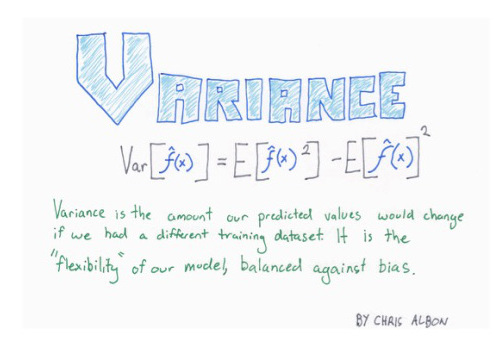 VARIANCE
Var[f̂(x)] = E[f̂(x)²] - E[f̂(x)]²
Variance is the amount our predicted values would change
if we had a different training dataset. It is the
"flexibility" of our model, balanced against bias.
BY CHRIS ALBON